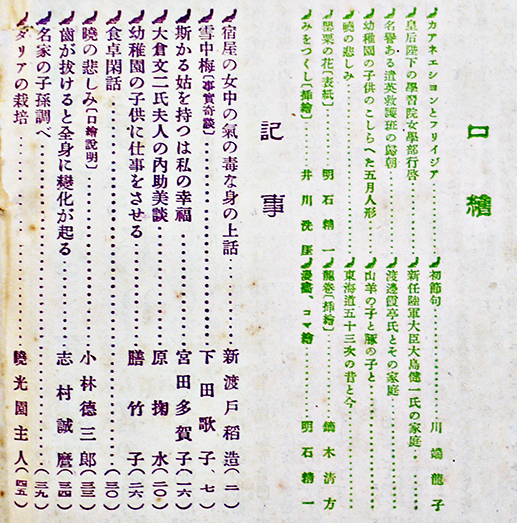 口繪
カアネエションとフリイジア
皇后陛下の學習院女學部行啓
名譽ある遣英救護班の歸朝
幼稚園の子供のこしらへた五月人形
曉の悲しみ
罌粟の花〔表紙〕 明石精一
みをつくし〔挿繪〕 井川洗厓
初節句 川端龍子
新任陸軍大臣大島健一氏の家庭
渡邊霞亭氏とその家庭
山羊の子と豚の子と
東海道五十三次の昔と今
龍卷〔挿繪〕 鏑木清方
漫畫、コマ繪 明石精一
記事
宿屋の女中の氣の毒な身の上話 新渡戸稻造(二)
雪中梅〔事實奇談〕 下田歌子(七)
斯かる姑を持つは私の幸福 宮田多賀子(一六)
大倉文二氏夫人の内助美談 原掬水(二〇)
幼稚園の子供に仕事をさせる 膳竹子(二六)
食卓閑話 (三〇)
曉の悲しみ〔口繪說明〕 小林德三郎(三三)
齒が拔けると全身に變化が起る 志村誠麿(三四)
名家の子孫調べ (三九)
ダリアの栽培 曉光園主人(四五)